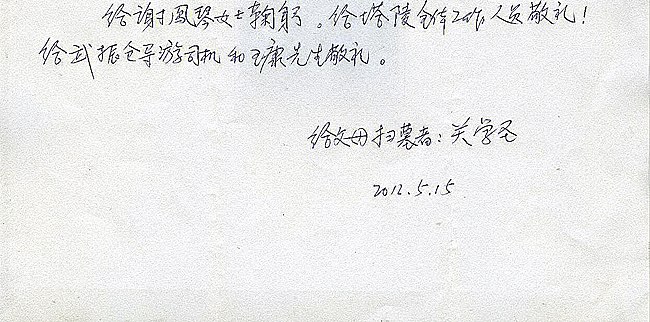 给谢凤琴女士鞠躬。给塔陵全体工作人员敬礼！
给武振仓导游司机和王康先生敬礼。
给父母扫墓者：关学圣
2012.5.15